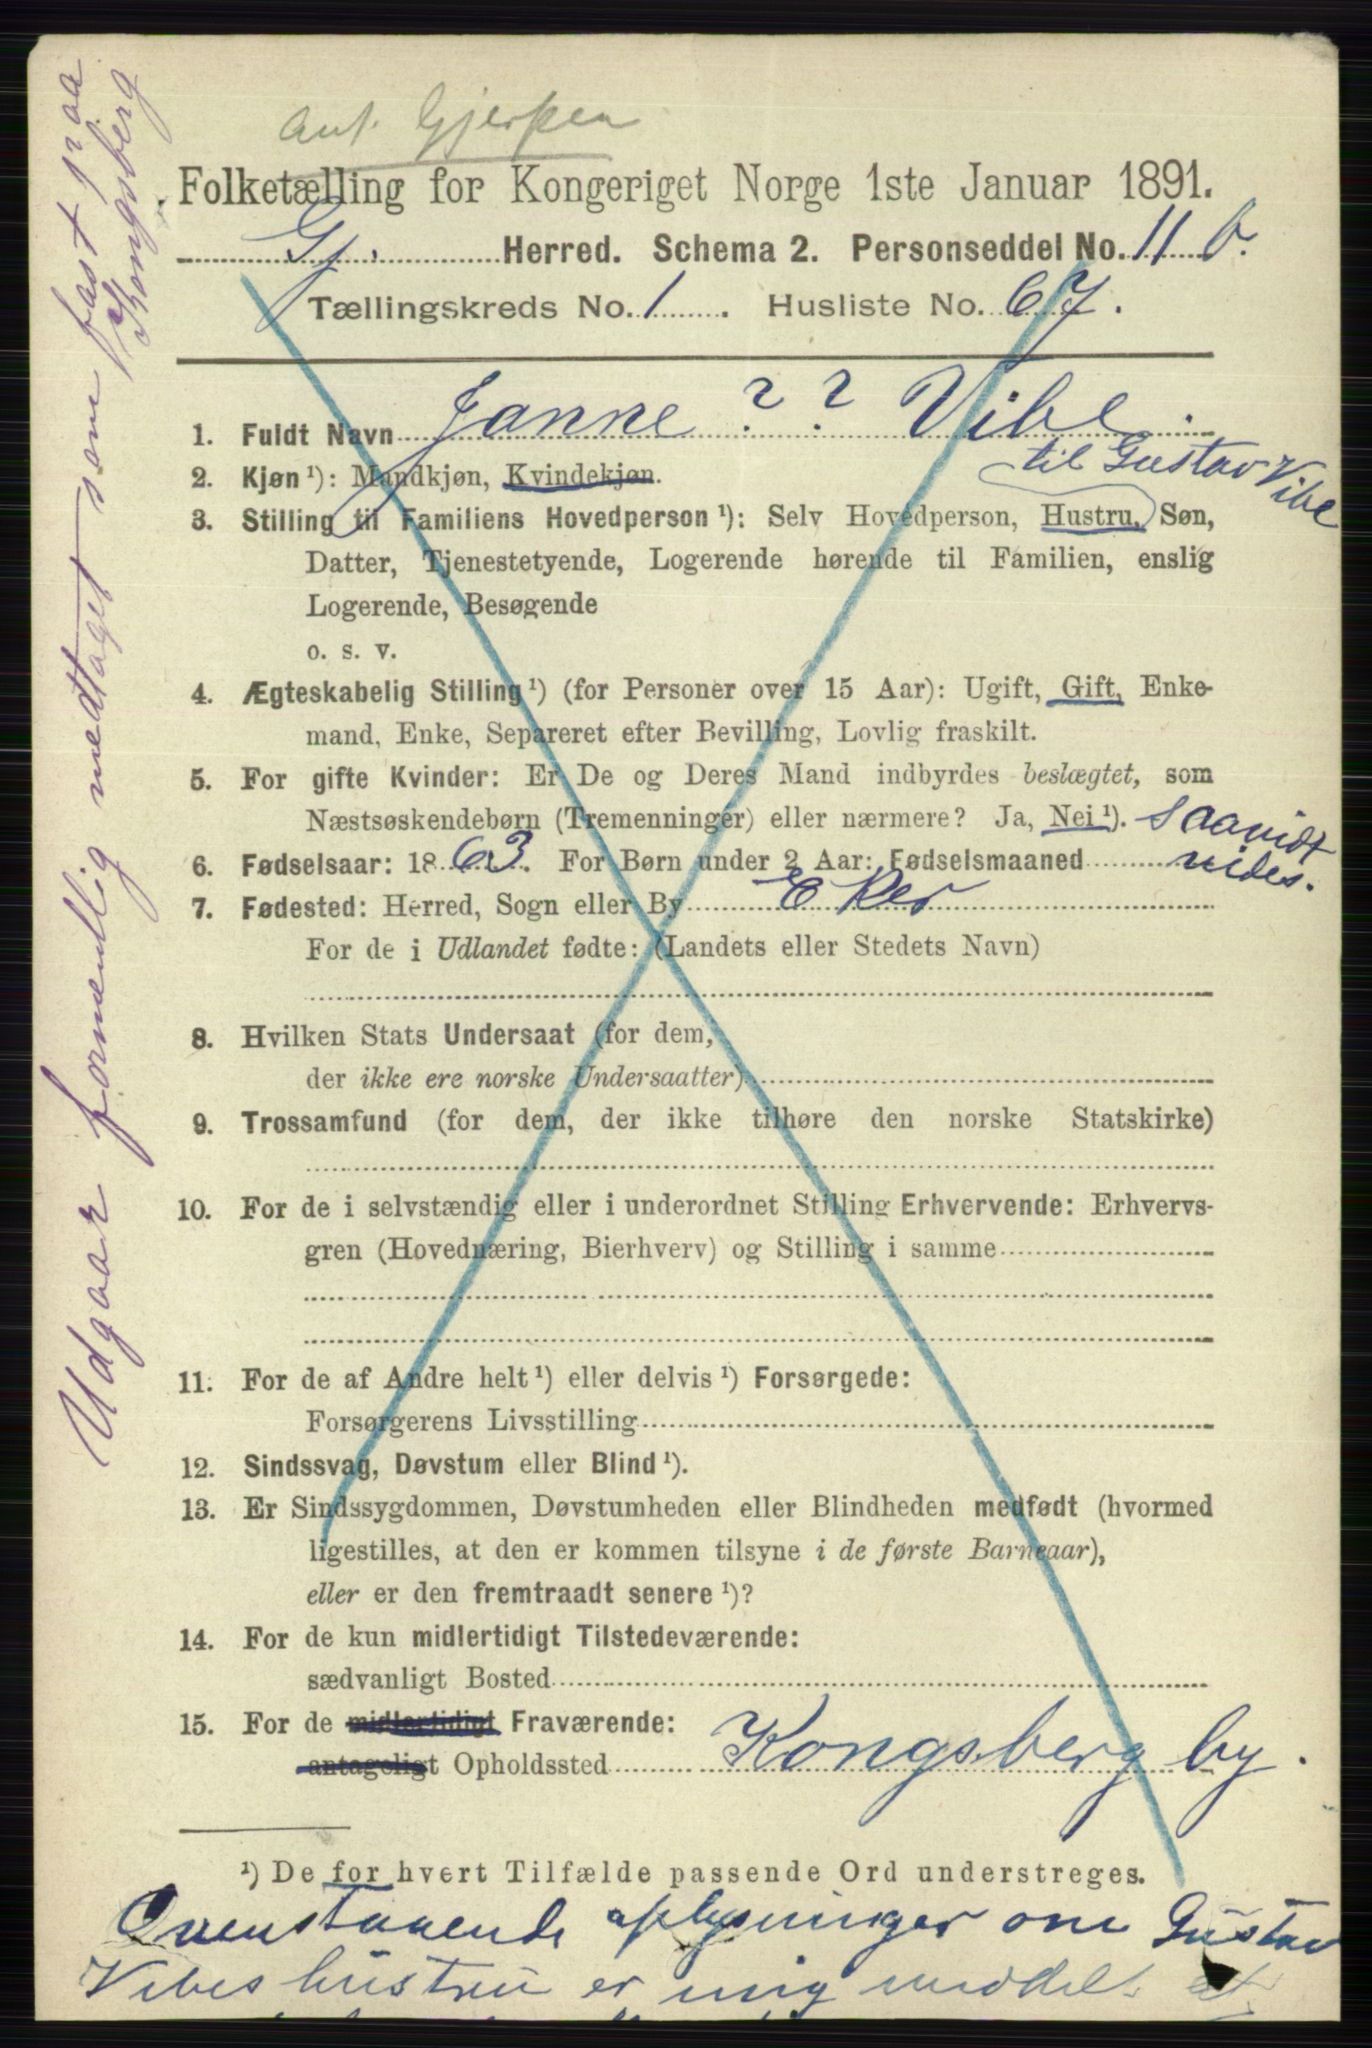 Ant. Gjerpen
Folketælling for Kongeriget Norge 1ste Januar 1891.
Gj. Herred. Schema 2. Personseddel No. 11 b.
Tællingskreds No. 1. Husliste No. 67.
1. Fuldt Navn Janne ? ? Vibe.
til Gustav Vibe
2. Kjøn ¹): Mandkjøn, Kvindekjøn.
3. Stilling til Familiens Hovedperson ¹): Selv Hovedperson, Hustru, Søn,
Datter, Tjenestetyende, Logerende hørende til Familien, enslig
Logerende, Besøgende
o. s. v.
4. Ægteskabelig Stilling ¹) (for Personer over 15 Aar): Ugift, Gift, Enke-
mand, Enke, Separeret efter Bevilling, Lovlig fraskilt.
5. For gifte Kvinder: Er De og Deres Mand indbyrdes beslægtet, som
Næstsøskendebørn (Tremenninger) eller nærmere? Ja, Nei ¹). saavidt
vides.
6. Fødselsaar: 1863. For Børn under 2 Aar: Fødselsmaaned
7. Fødested: Herred, Sogn eller By Eker
For de i Udlandet fødte: (Landets eller Stedets Navn)
8. Hvilken Stats Undersaat (for dem,
der ikke ere norske Undersaatter)
9. Trossamfund (for dem, der ikke tilhøre den norske Statskirke)
10. For de i selvstændig eller i underordnet Stilling Erhvervende: Erhvervs-
gren (Hovednæring, Bierhverv) og Stilling i samme
11. For de af Andre helt ¹) eller delvis ¹) Forsørgede:
Forsørgerens Livsstilling
12. Sindssvag, Døvstum eller Blind ¹).
13. Er Sindssygdommen, Døvstumheden eller Blindheden medfødt (hvormed
ligestilles, at den er kommen tilsyne i de første Barneaar),
eller er den fremtraadt senere ¹)?
14. For de kun midlertidigt Tilstedeværende:
sædvanligt Bosted
15. For de midlertidigt Fraværende:
antageligt Opholdssted Kongsberg by.
¹) De for hvert Tilfælde passende Ord understreges.
Ovenstaaende oplysninger om Gustav
Vibes hustru er mig meddelt
Udgaar formentlig medtaget som fast paa
Kongsberg